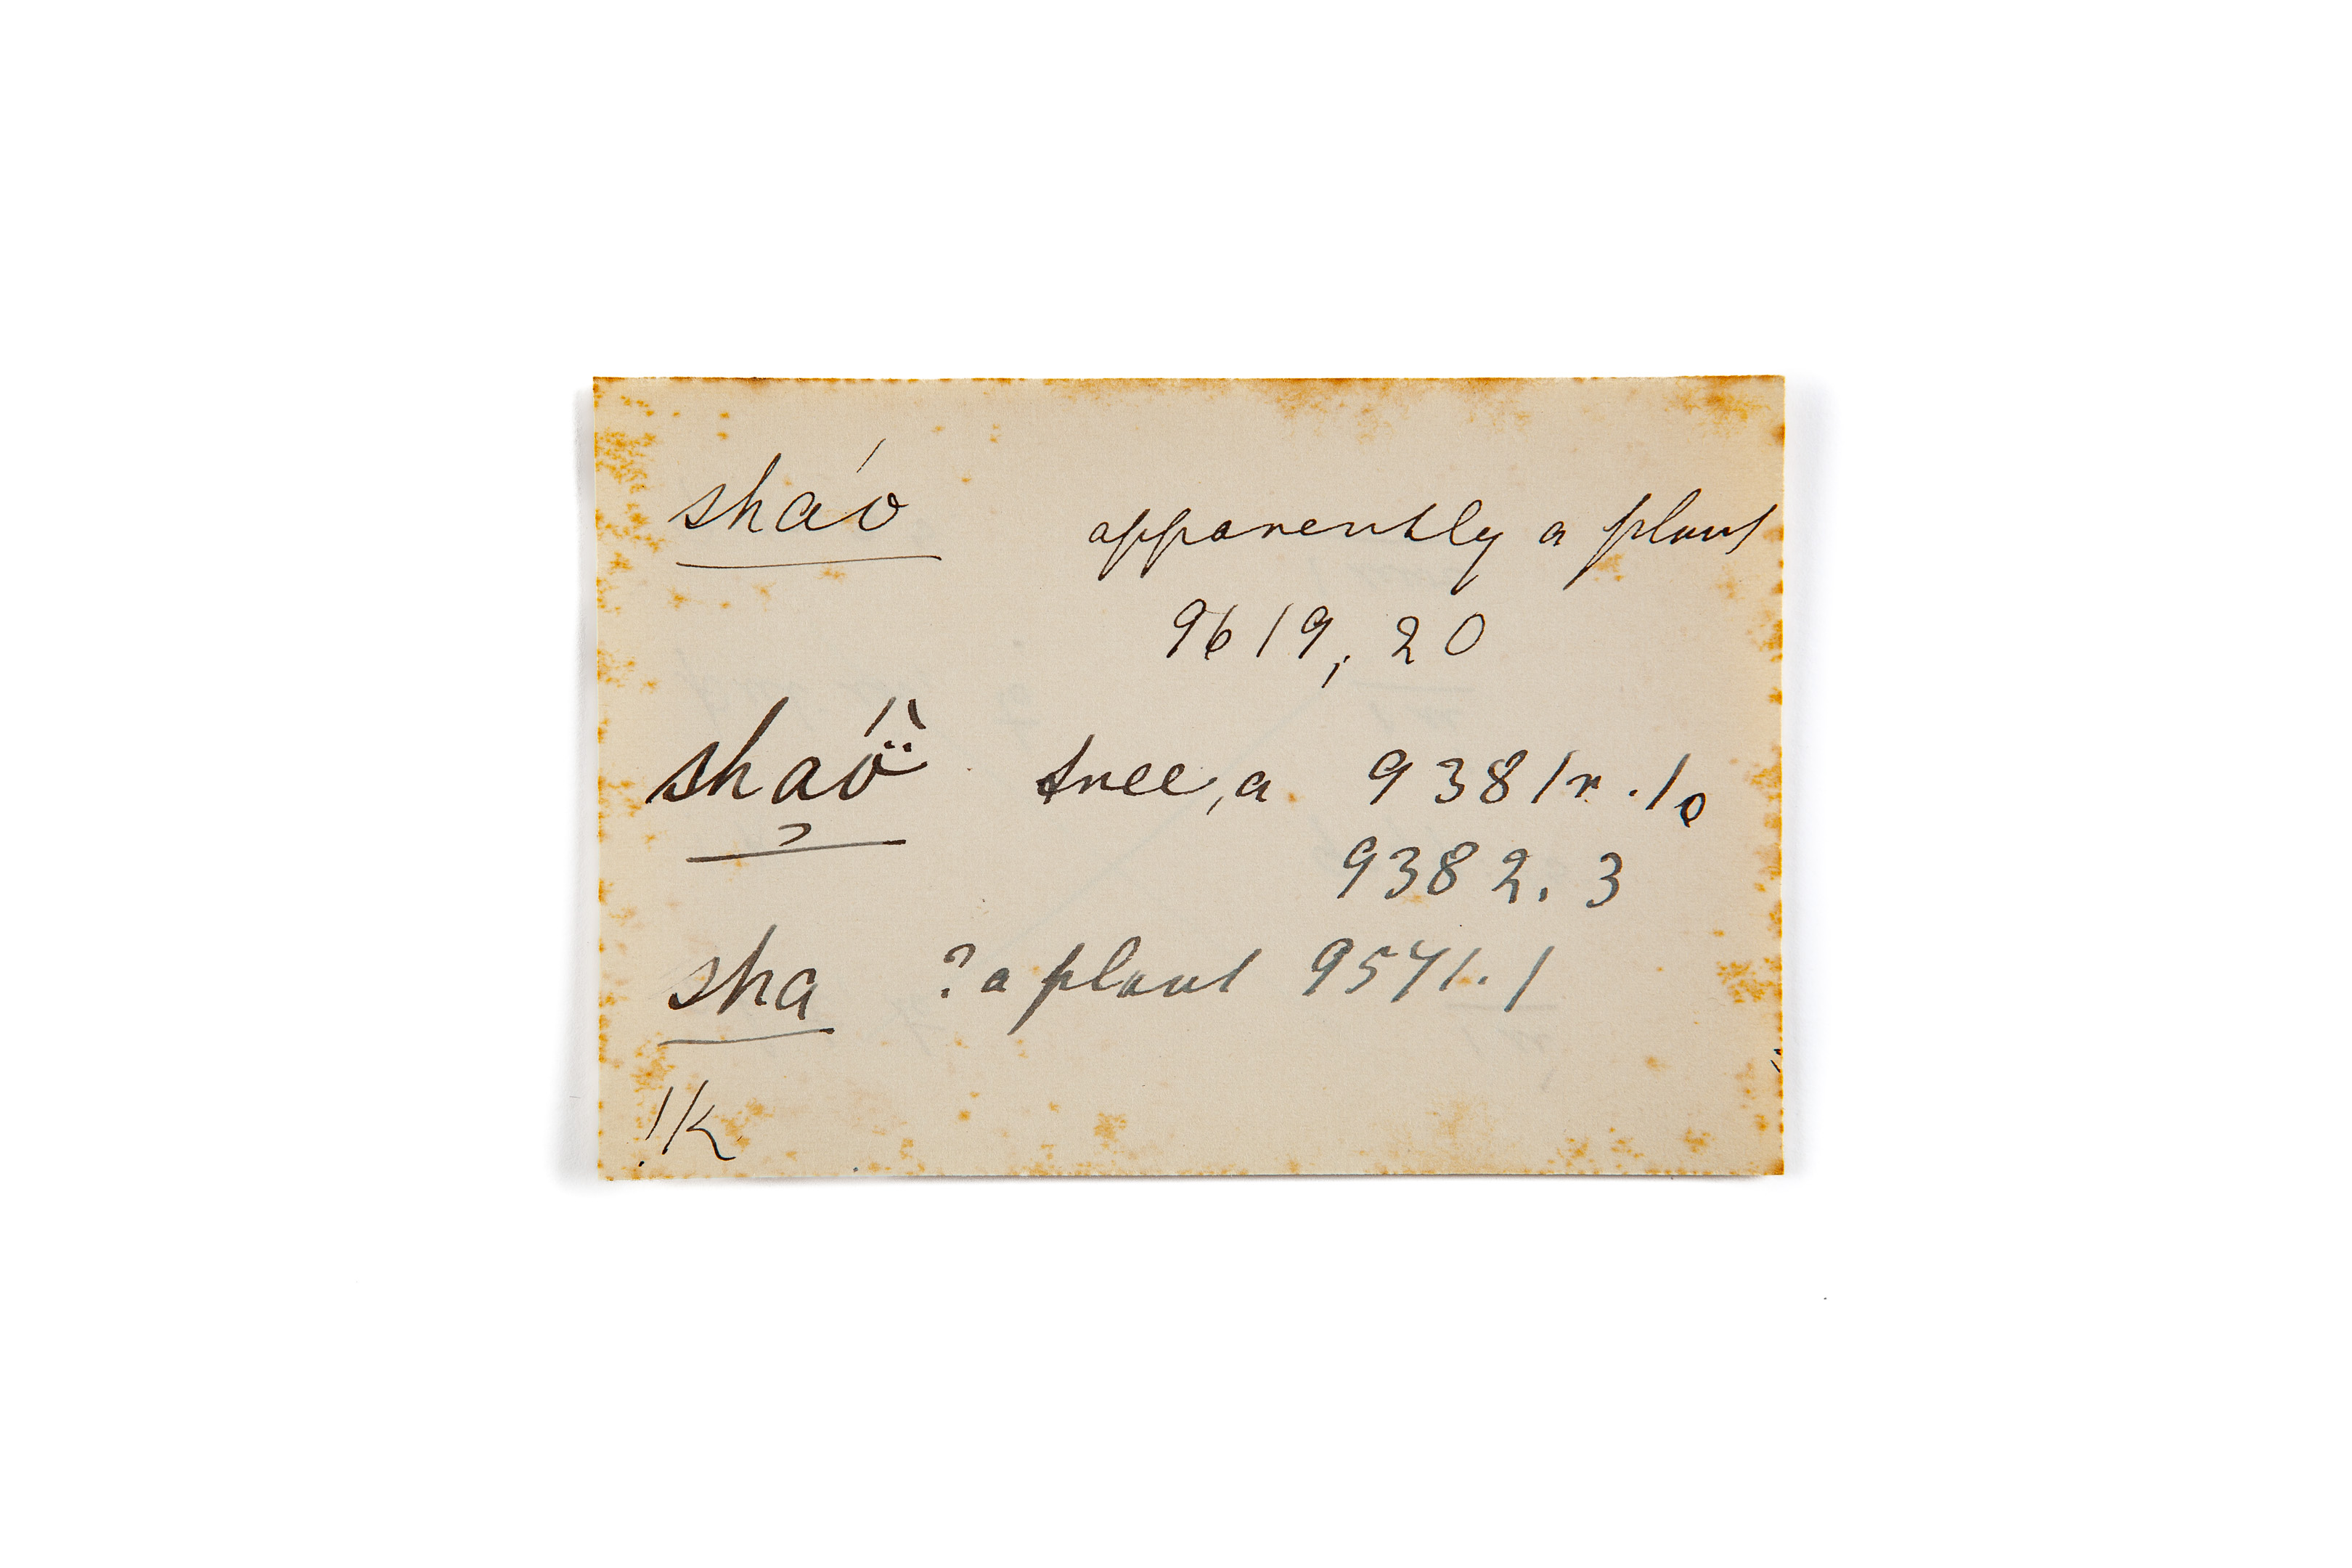 sháo apparently a plant
9619, 20
sháö̀ tree, a 9381r. 10
9382. 3
sha ? a plant 9571. 1
!K